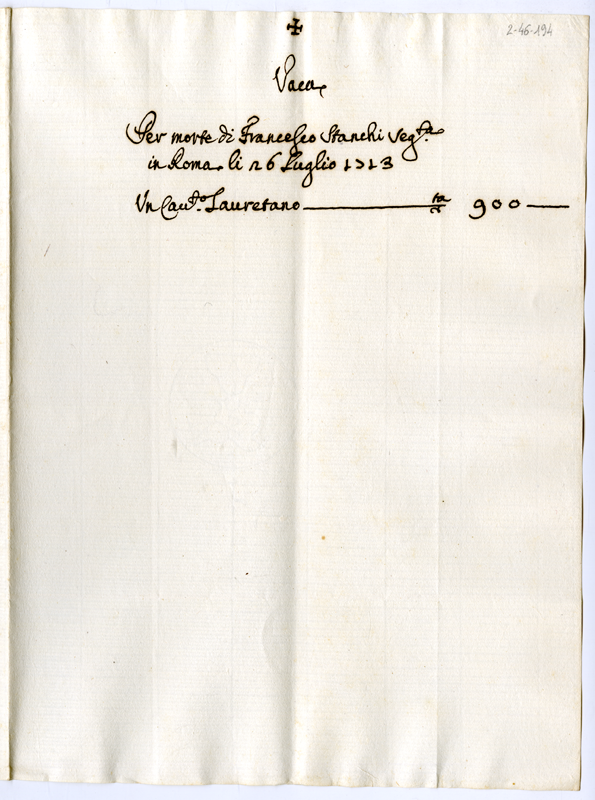 2-46-194
✠
Vaca
Per morte di Francesco Stanchi seg.ta
in Roma li 26 Luglio 1713
Un Cau.to Lauretano ta 900